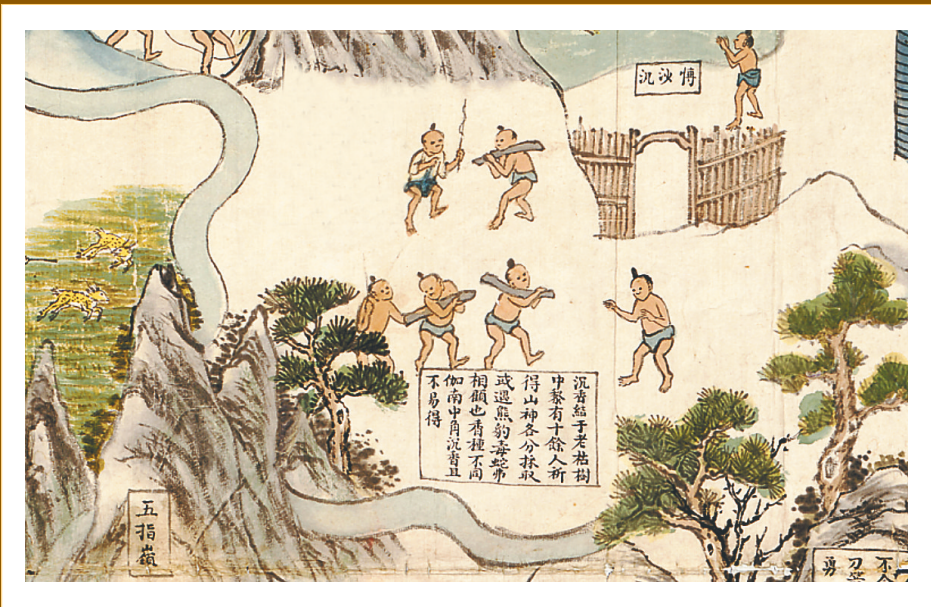 愽 沉
沉香結于老枯樹
中黎有十餘人祈
得山神各分採取
或遇熊豹毒蛇弗
相顧也香種不同
伽南中角沉香且
不易得
五指嶺
不
刀
勇